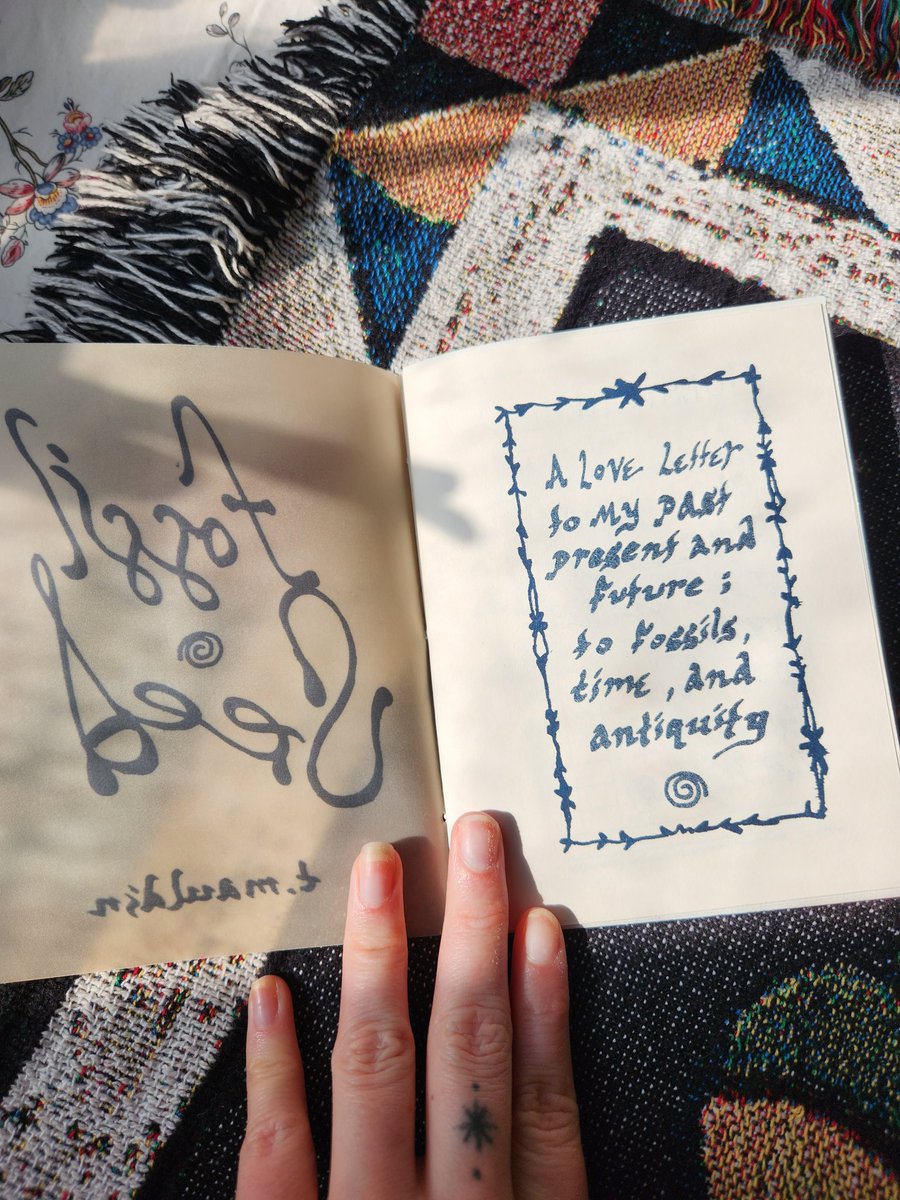 fossil
Seed
t. mauldin
A Love Letter
to My past
present and
future ;
to fossils,
time , and
antiquity